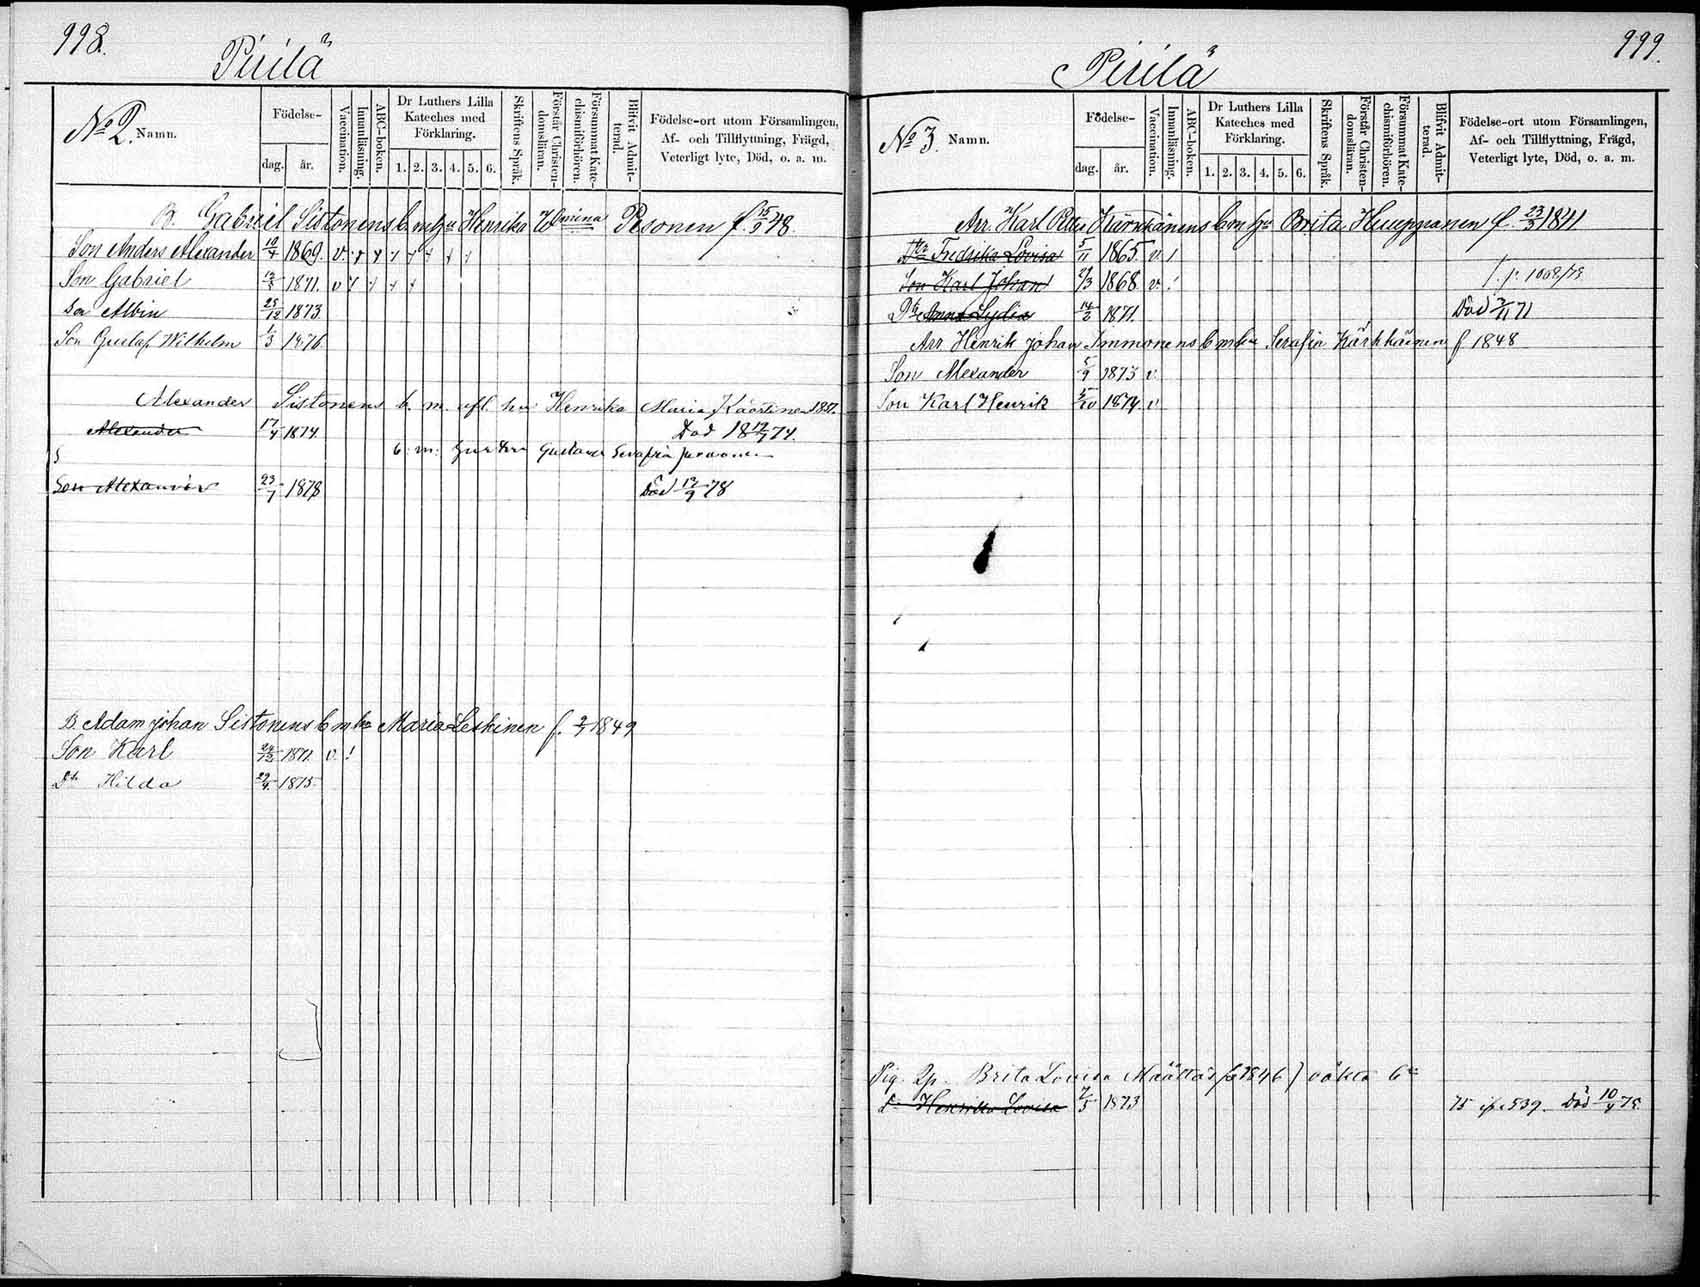 998.
Pirilä
No 2. Namn.
Födelse-
dag. år.
Vaccination.
Innanläsning.
ABC-boken.
Dr Luthers Lilla
Kateches med
Förklaring.
1. 2. 3. 4. 5. 6.
Skriftens Språk.
Förstår Christen-
domsläran.
Försummat Kate-
chismiförhören.
Blifvit Admit-
terad.
Födelse-ort utom Församlingen,
Af- och Tillflyttning, Frägd,
Veterligt lyte, Död, o. a. m.
B. Gabriel Sistonens b. m. hu Henrika Pesonen f. 48
Son Anders Alexander 10/4 1869. v
Son Gabriel 1871. v
Son Albin 25/12 1873
Son Gustaf Wilhelm 1/3 1876
Alexander Sistonens b. m. afl. hu Henrika Maria
Alexander 17/4 1874. Död 18 74.
b. m. Gustava Serafia
Son Alexander 23/7 1878 Död 12/9 78
B. Adam Johan Sistonens b m hu Maria Leskinen f. 2/7 1849
Son Karl 24/12 1871 v !
Dr Hilda 29/4 1875
999.
Pirilä
No 3. Namn.
Födelse-
dag. år.
Vaccination.
Innanläsning.
ABC-boken.
Dr Luthers Lilla
Kateches med
Förklaring.
1. 2. 3. 4. 5. 6.
Skriftens Språk.
Förstår Christen-
domsläran.
Försummat Kate-
chismiförhören.
Blifvit Admit-
terad.
Födelse-ort utom Församlingen,
Af- och Tillflyttning, Frägd,
Veterligt lyte, Död, o. a. m.
Arr. Karl Petter Kärnkänens b m hu Brita Huuppanen f. 23/3 1841
Dtr Fredrika Lovisa 5/11 1865. v !
Son Karl Johan 1868 v !
Dtr Anna Lydia 14/2 1871. Död 71
Arr Henrik Johan Immonens b m hu Serafia Kärkkäinen f 1848
Son Alexander 5/9 1873 v
Son Karl Henrik 5/10 1874 v
Pig. Brita Lovisa Määttäs (f 1846) oäkta b
D. Henrika Lovisa 7/5 1873 75 p. 539. Död 10/4 75